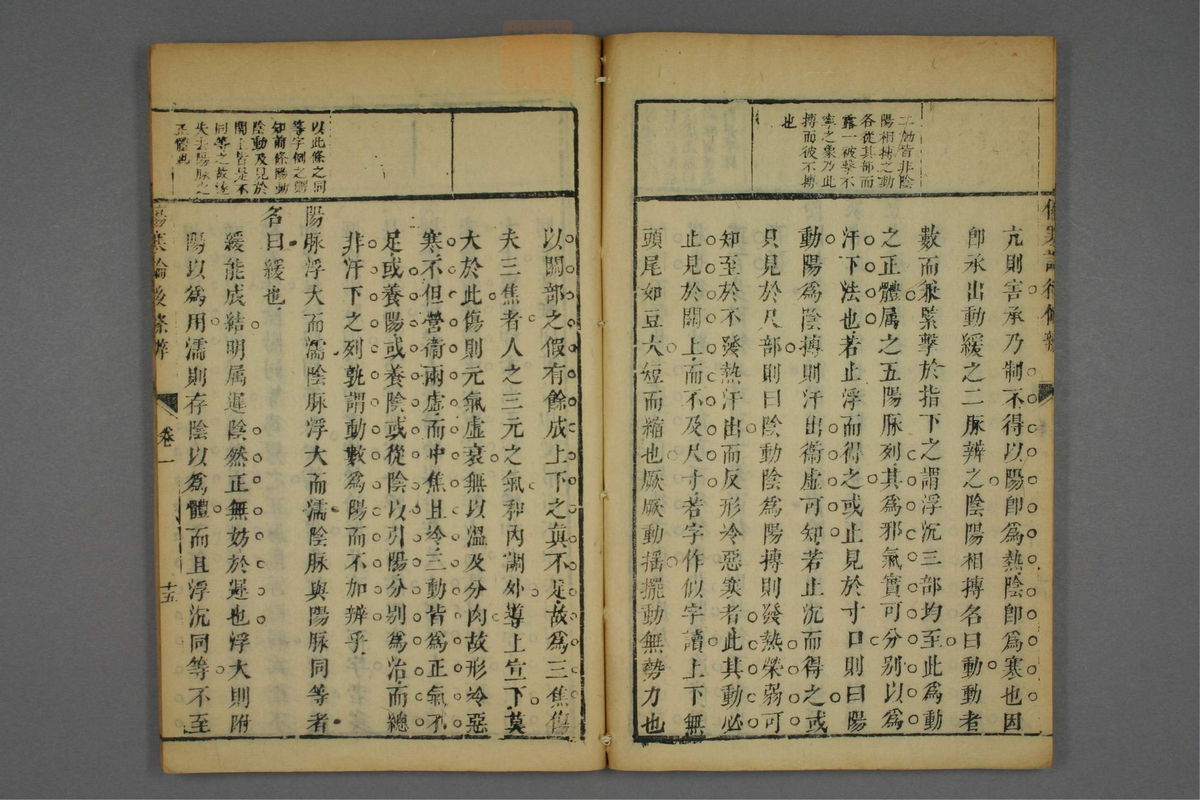 亢則害承乃制不得以陽卽爲熱陰卽爲寒也因
卽承出動緩之二脈辨之陰陽相搏名曰動動者
數而兼緊擊於指下之謂浮沉三部均至此爲動
之正體属之五陽脈列其爲邪氣實可分别以爲
汗下法也若止浮而得之或止見於寸口則曰陽
動陽爲陰搏則汗出衞虛可知若止沉而得之或
只見於尺部則曰陰動陰爲陽搏則發熱榮弱可
知至於不發熱汗出而反形冷惡寒者此其動必
止見於關上而不及尺寸若字作似字讀上下無
頭尾如豆大短而縮也厥厥動搖擺動無勢力也
皆非陰
陽相搏之動
各從其部而
露一被擊不
寧之象乃此
搏而彼不搏
也
以關部之假有餘成上下之眞不足故爲三焦傷
夫三焦者人之三元之氣和內調外導上宣下莫
大於此傷則元氣虛衰無以溫及分肉故形冷惡
寒不但營衞兩虛而中焦且冷三動皆爲正氣不
足或養陽或養陰或從陰以引陽分别爲治而總
非汗下之列孰謂動數爲陽而不加辨乎
陽脈浮大而濡陰脈浮大而濡陰脈與陽脈同等者
名曰緩也
緩能成結明属遲陰然正無妨於遲也浮大則附
陽以爲用濡則存陰以爲體而且浮沉同等不至
以此條之同
等字例之則
知前條陽動
陰動及見於
關上皆是不
同等之故遂
失去陽脈之
正體也
傷寒論後條辨
卷一
十五